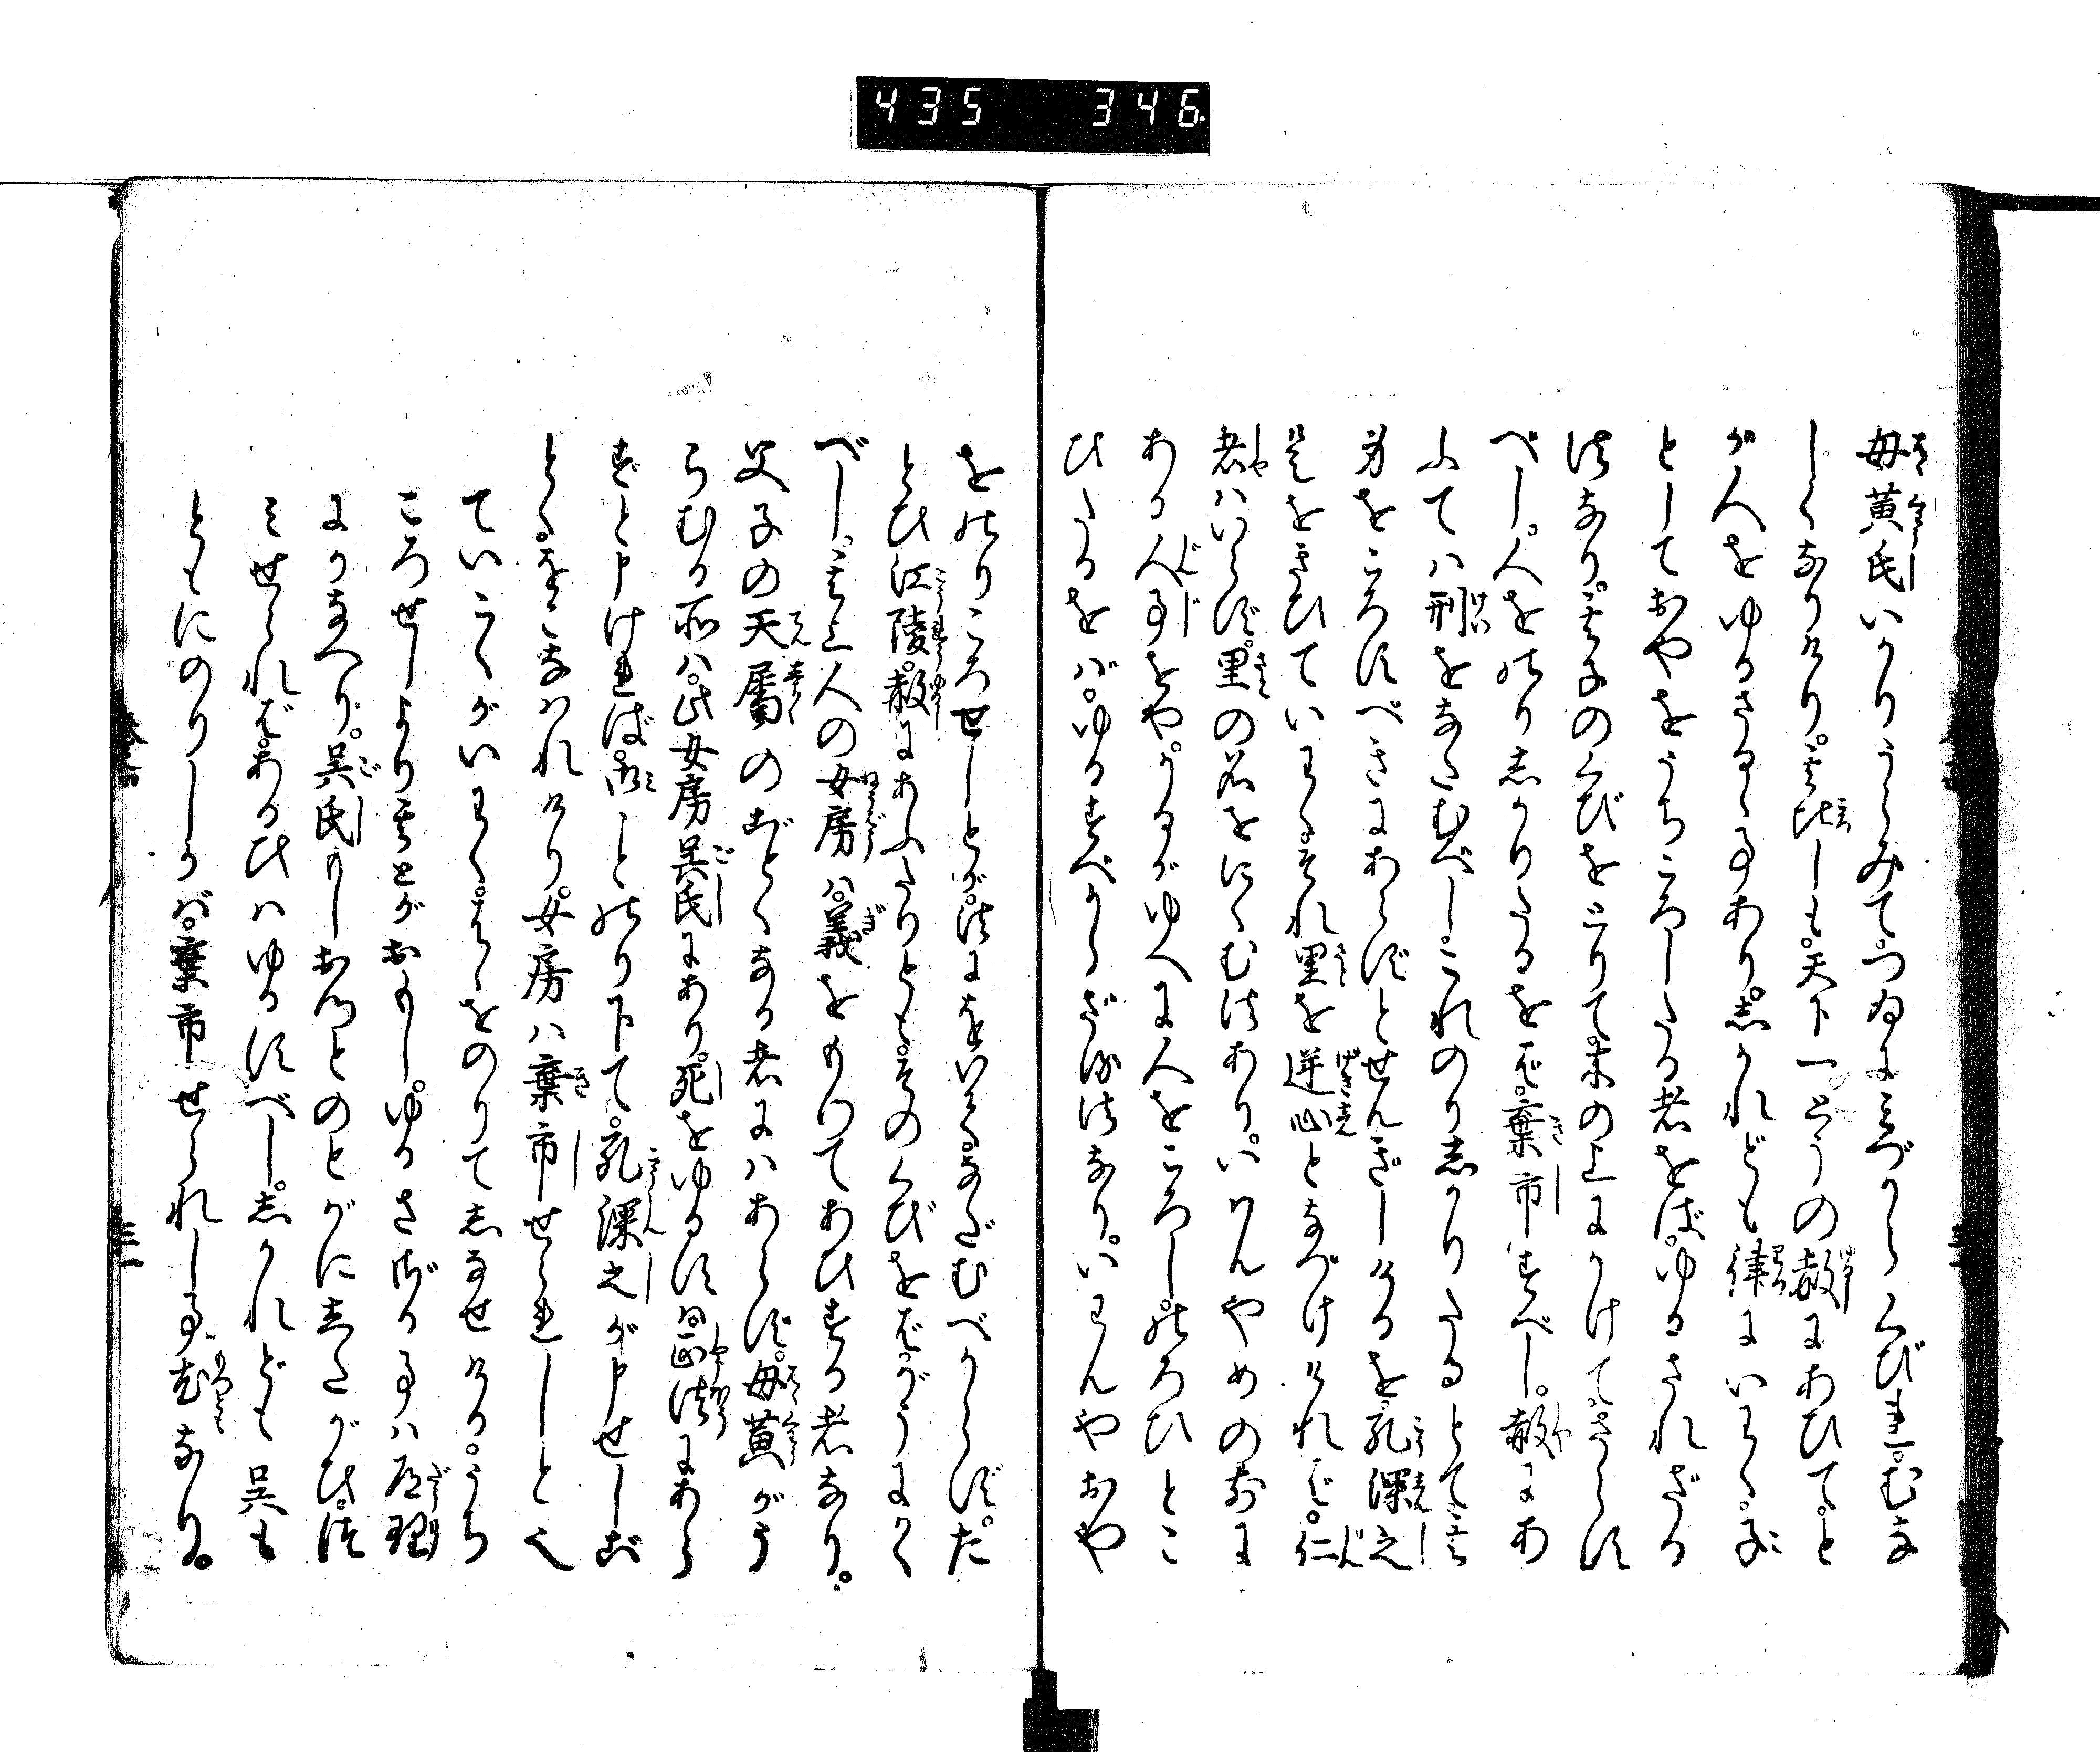 435 346
母黄氏いかりうらみてつゐにみづからくびれむな
しくなりけり。其比しも。天下一とうの赦にあひて。と
が人をゆるさるゝ事あり。志かれども律にいはく。子
としておやをうちころしたる者をば。ゆるされざる
法なり。其子のくびをとりて。木の上にかけてさらす
べし。人をのりしかりたるをば。棄市すべし。赦にあ
ふては刑をなだむべし。これのりしかりたるとて其
身をころすべきにあらずとせんぎしけるを。孔深之
是をきひていはくそれ里を逆心となづけければ。仁
者はいらず。里の名をにくむ法あり。いはんやめの前に
ある人事をや。かるがゆへに人をころし。のろひとこ
ひたるをば。ゆるすべからざる法なり。いはんやおや
をのりころせしとが。法にをいてなだむべからず。た
とひ江陵。赦にあふたりとも。そのくびをば。がうにかく
べし。其上人の女房は。義をもつてあひする者なり。
父子の天属のごとくなる者にはあらず。母黄がう
らむる所は。此女房呉氏にあり。死をゆるす。正法にあら
ずと申ければ。みことのり下て。孔深之が申せしご
とくをこなはれけり。女房は棄市せられしと也
ていこくがいはく。はゝをのりて志なせける。うち
ころせしより其とがおもし。ゆるさゞる事は。道理
にかなへり。呉氏もしおつとのとがにしたがひ。法
みせられば。あるひはゆるすべし。志かれども呉も
ともにのりしかば。棄市せられし事尤なり。